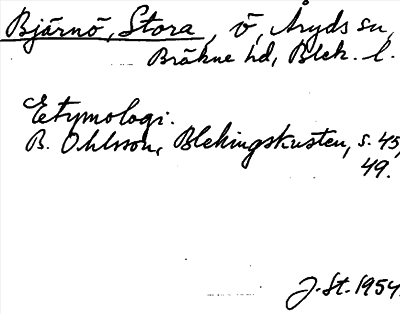 Bjärnö, Stora, ö, Åryds sn,
Bräkne hd, Blek. l.
Etymologi.
B. Ohlsson, Blekingskusten, s. 45,
49.
J. St. 1954.